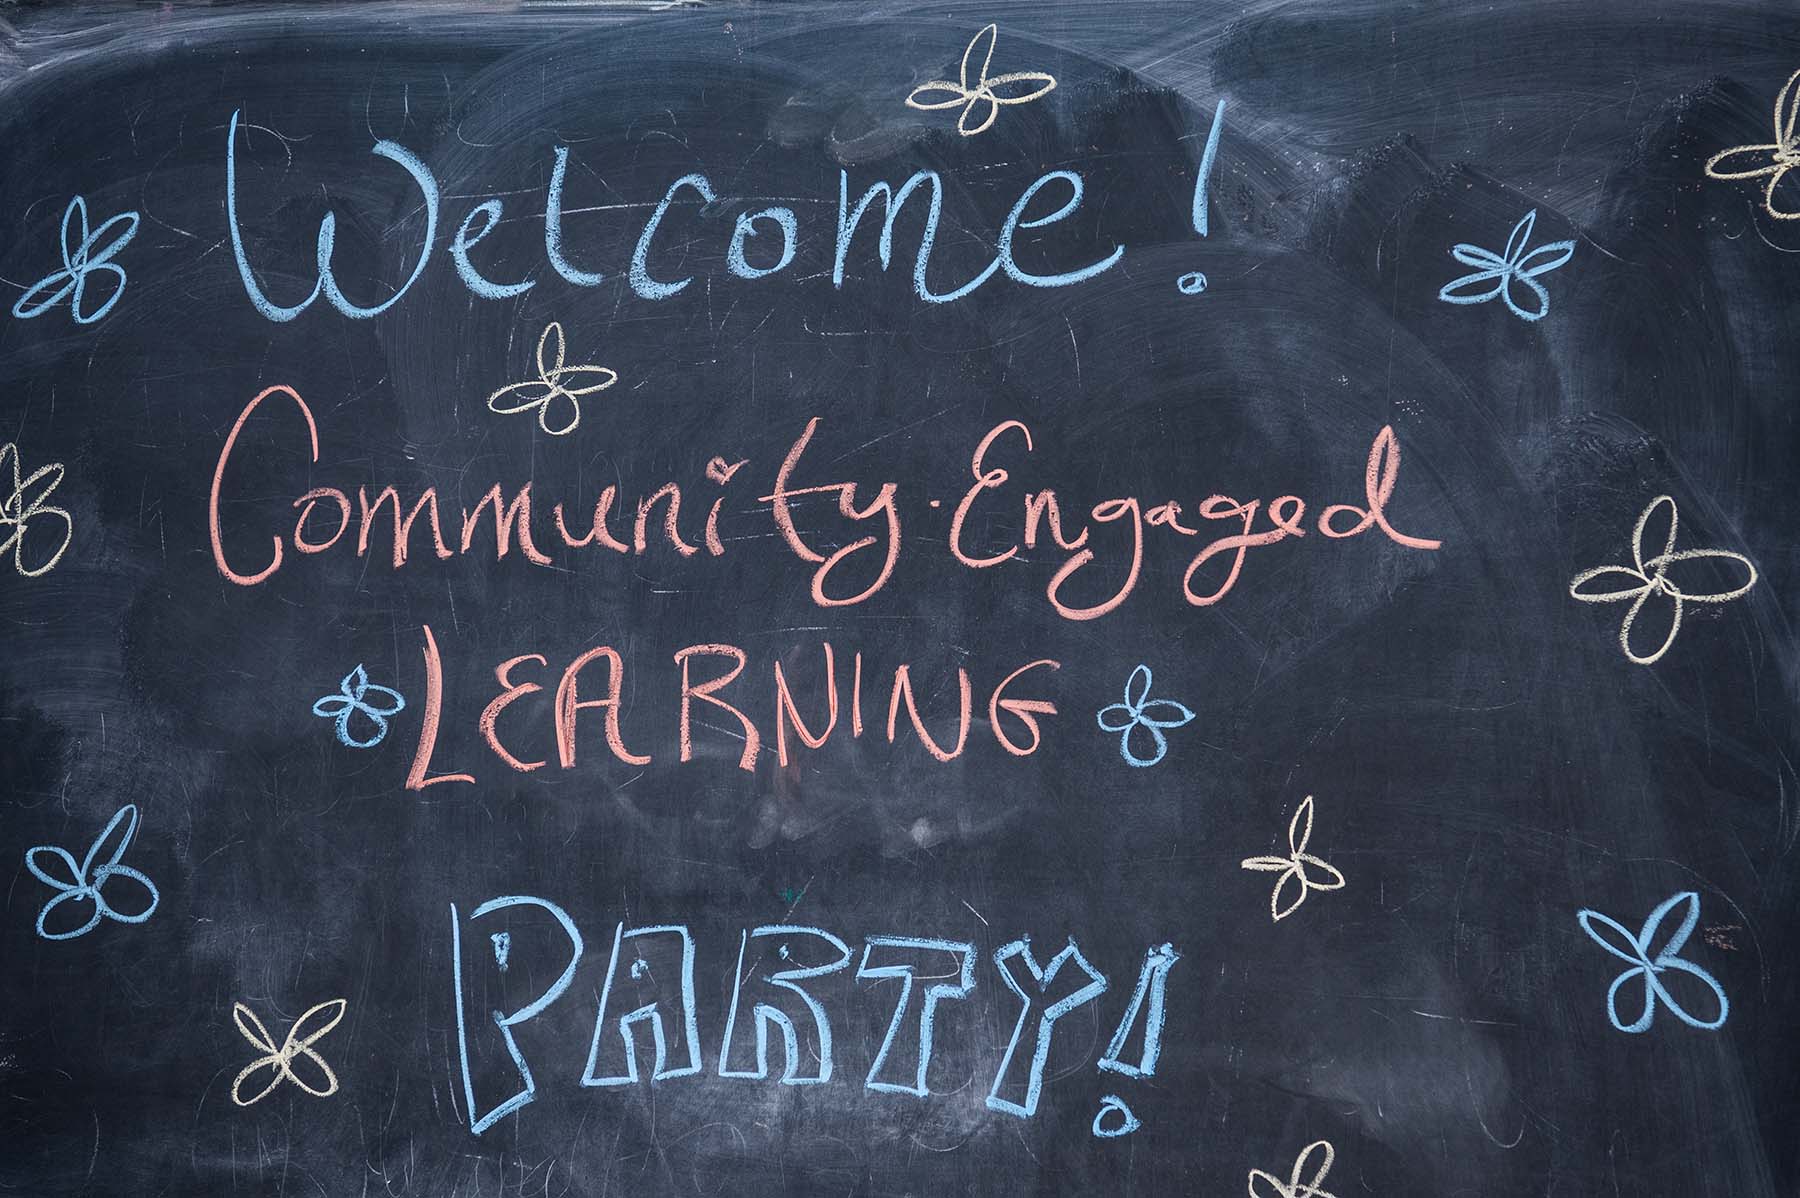 Welcome!
Community-Engaged
LEARNING
PARTY!